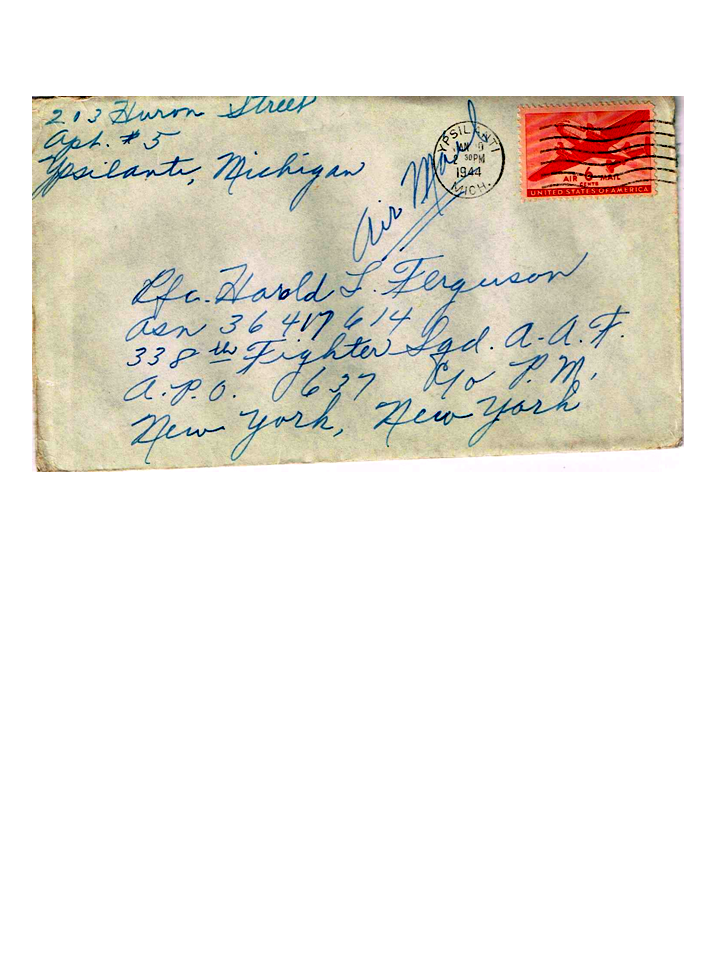 213 Huron Street
Apt. #5
Ypsilanti, Michigan
Air Mail
YPSILANTI
JAN
2 30 PM
1944
MICH.
AIR 6 MAIL
CENTS
UNITED STATES OF AMERICA
Pfc. Harold L. Ferguson
asn 36 417 614
338 th Fighter Sqd. A.A.F.
A.P.O. 637 c/o P.M.
New York, New York